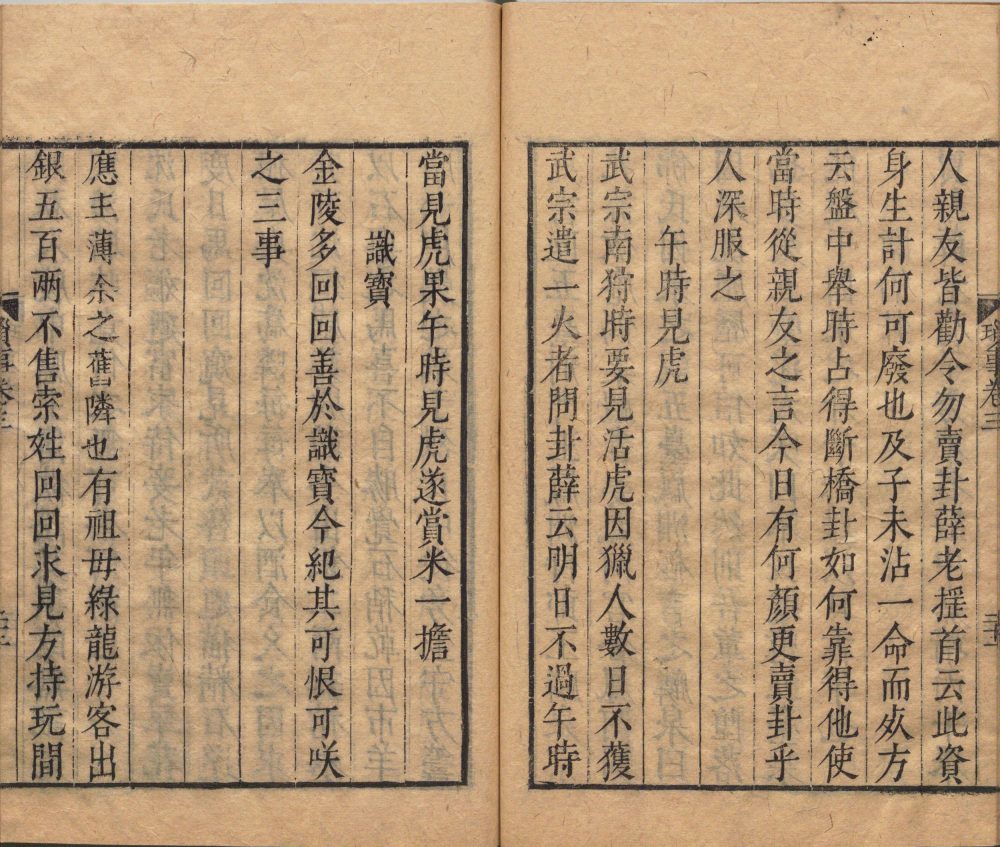 人親友皆勸令勿賣卦薛老摇首云此資
身生計何可廢也及子未沾一命而㱕方
云盤中舉時占得斷橋卦如何靠得他使
當時從親友之言今日有何顏更賣卦乎
人深服之
午時見虎
武宗南狩時要見活虎因獵人數日不獲
武宗遣一火者問卦薛云明日不過午時
當見虎果午時見虎遂賞米一擔
識寳
金陵多回回善於識寳今紀其可恨可咲
之三事
應主薄余之舊隣也有祖母綠龍游客出
銀五百兩不售索姓回回求見方持玩間
瑣事卷三